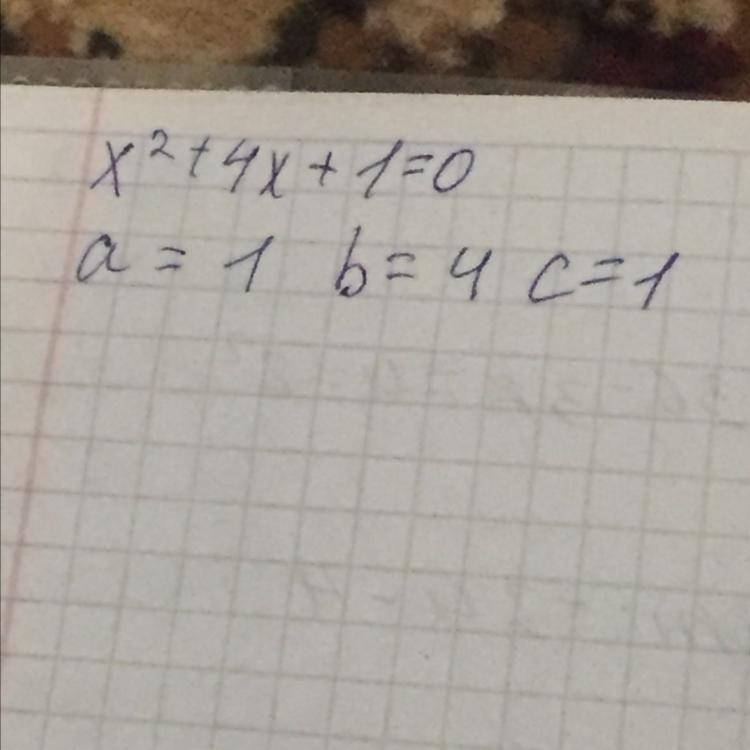 x²+4x+1=0
a=1 b=4 c=1